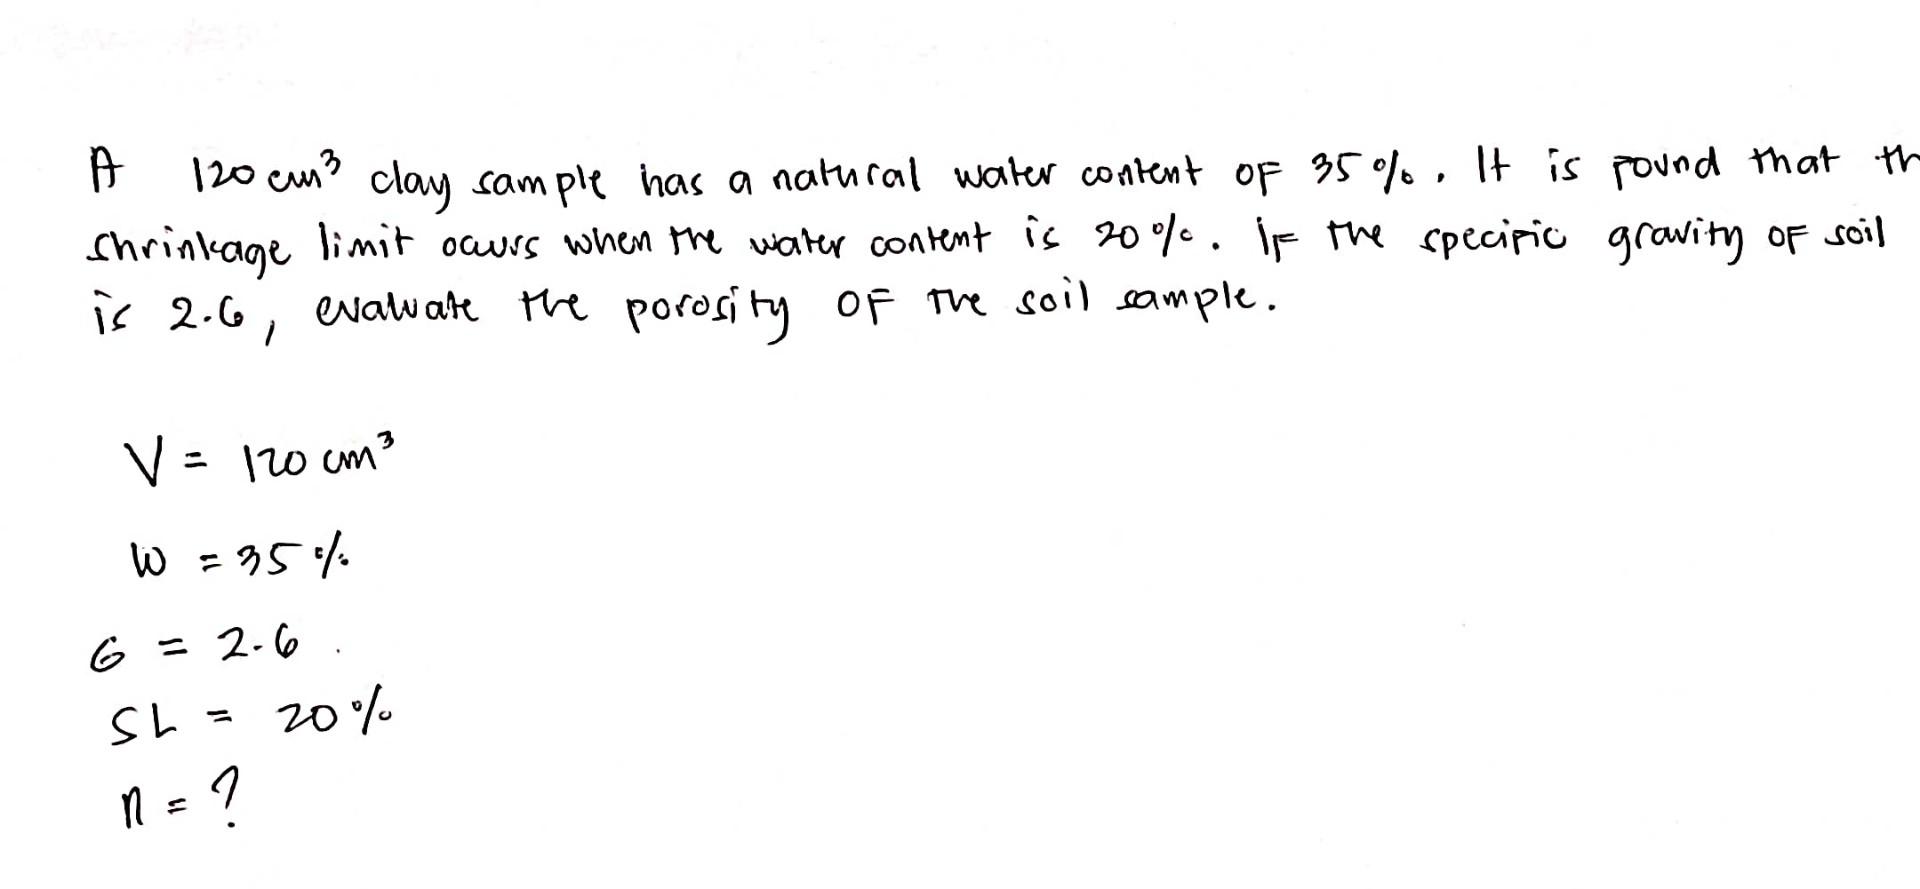 A 120 cm³ clay sample has a natural water content of 35%. It is found that th
shrinkage limit occurs when the water content is 20%. If the specific gravity of soil
is 2.6, evaluate the porosity of the soil sample.
V = 120 cm³
W = 35%
G = 2.6
SL = 20%
n = ?